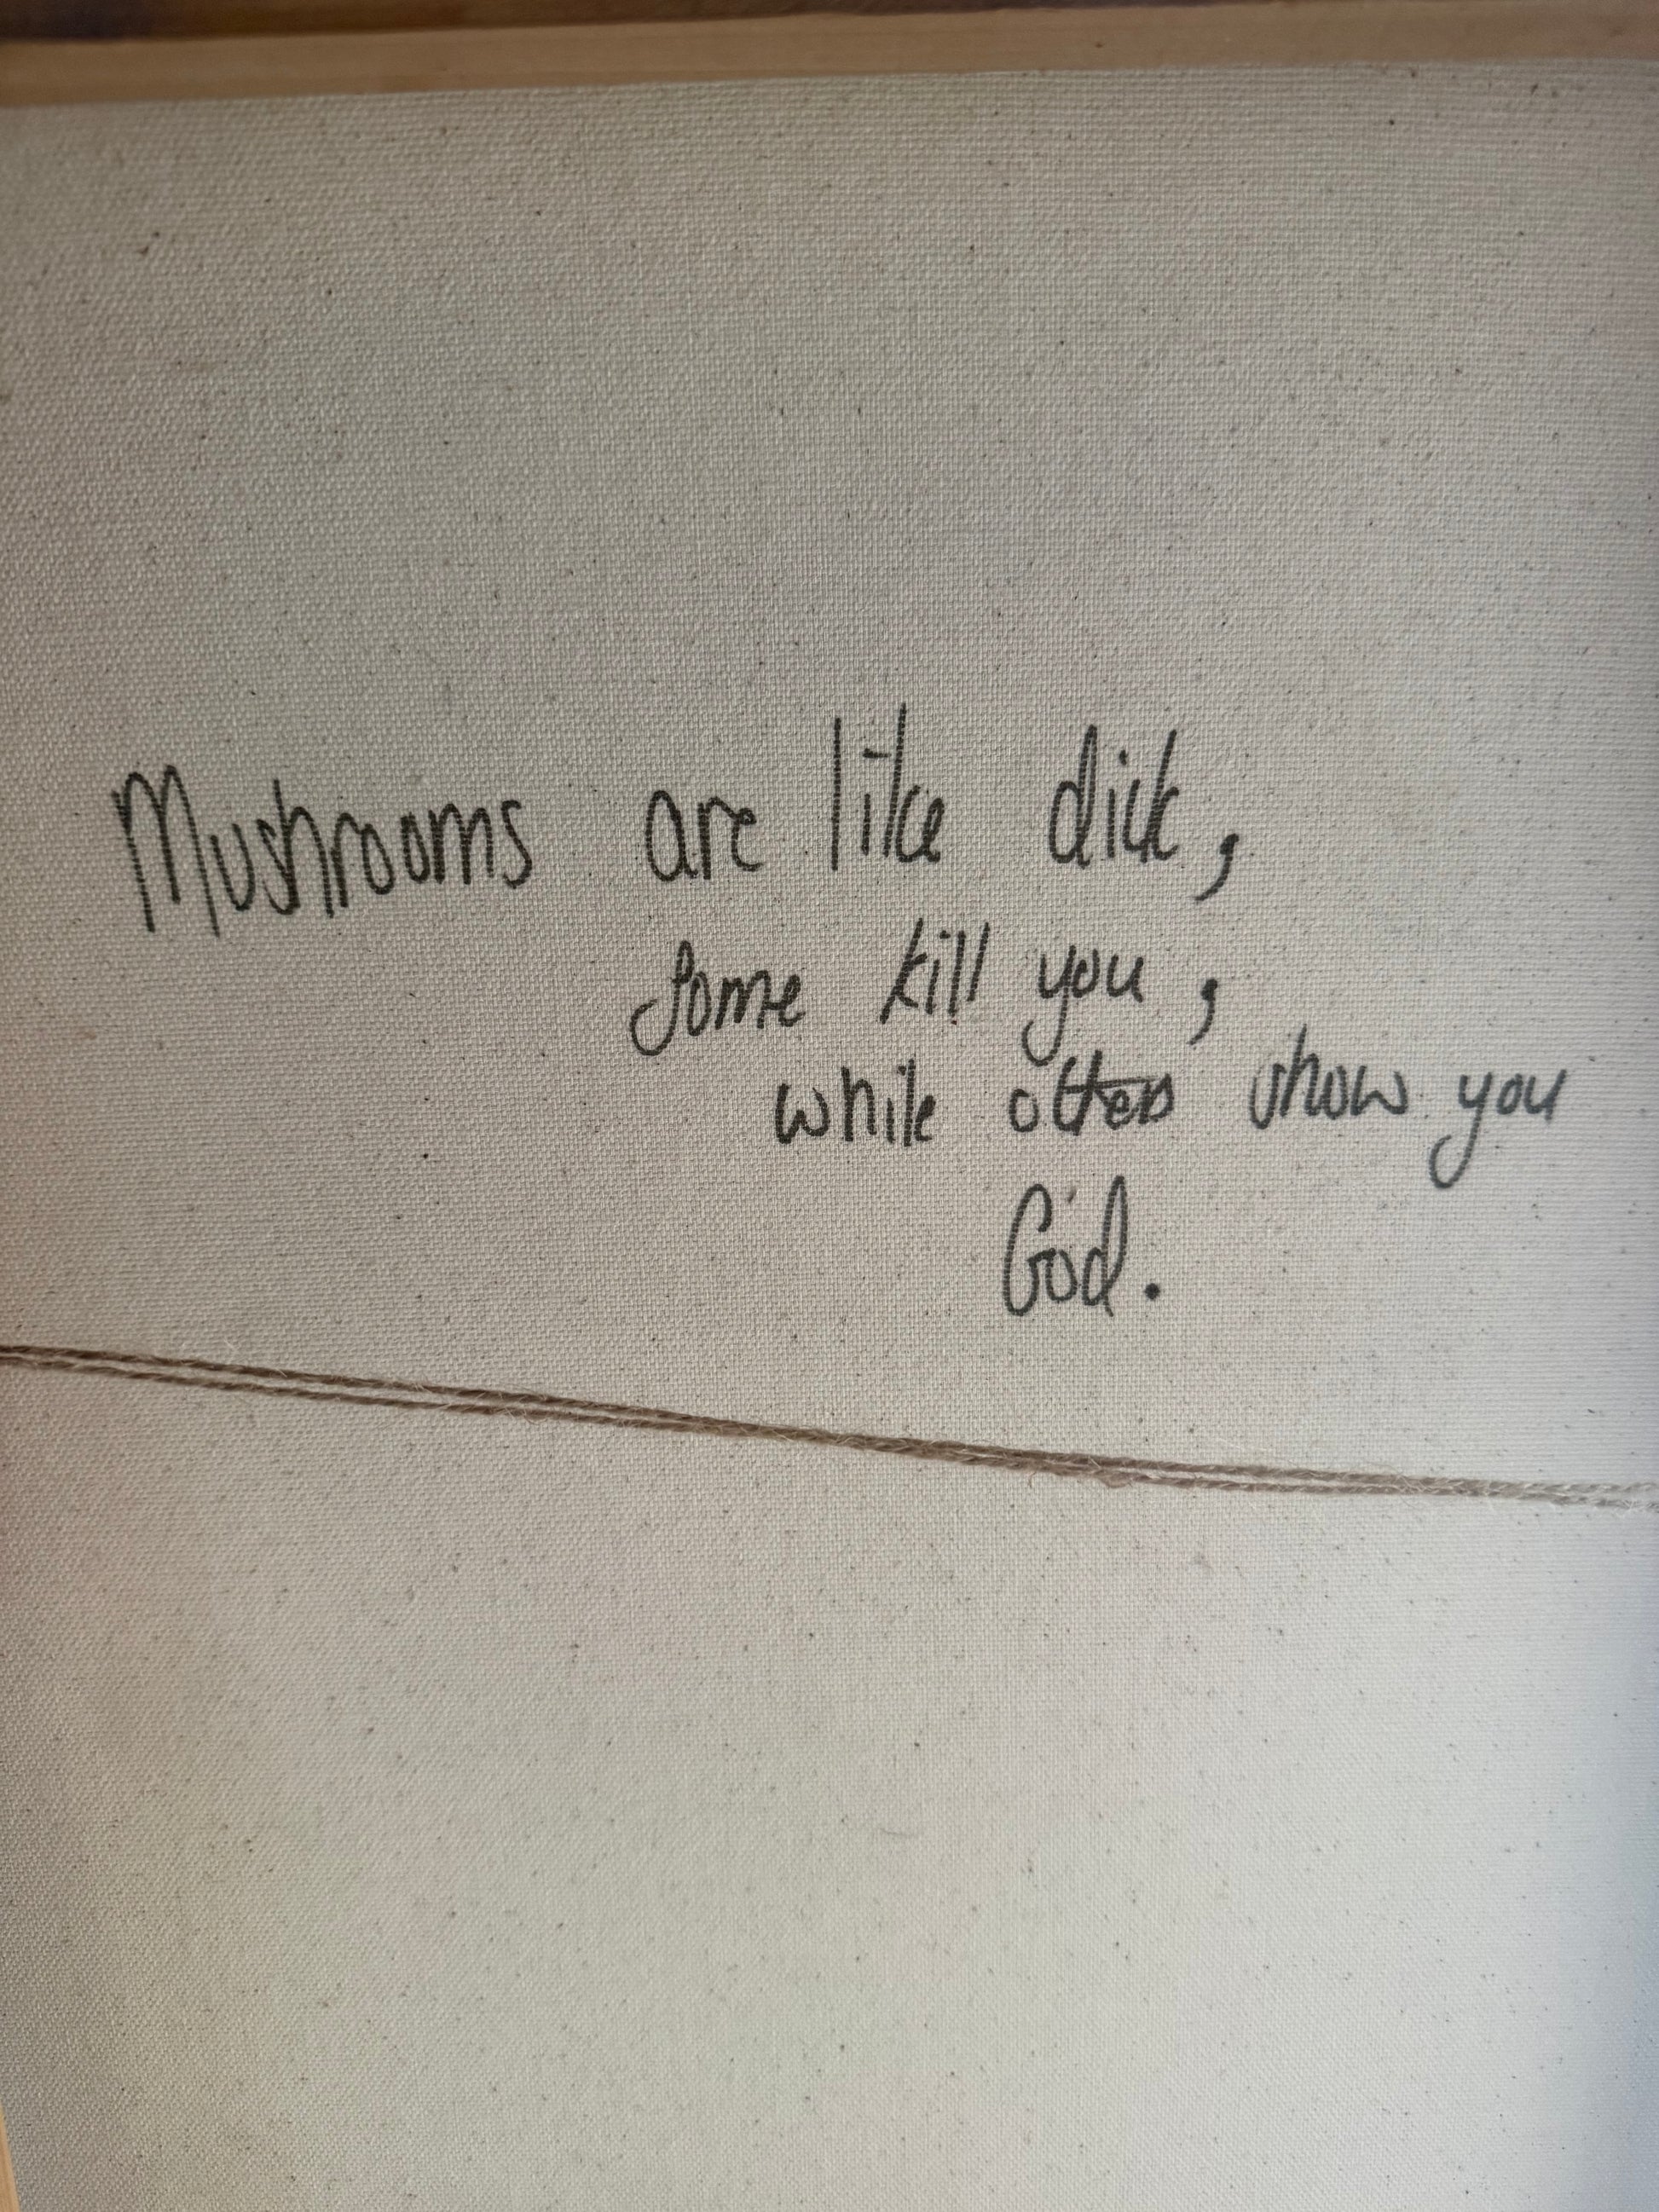 Mushrooms are like dick,
Some kill you,
while others show you
God.